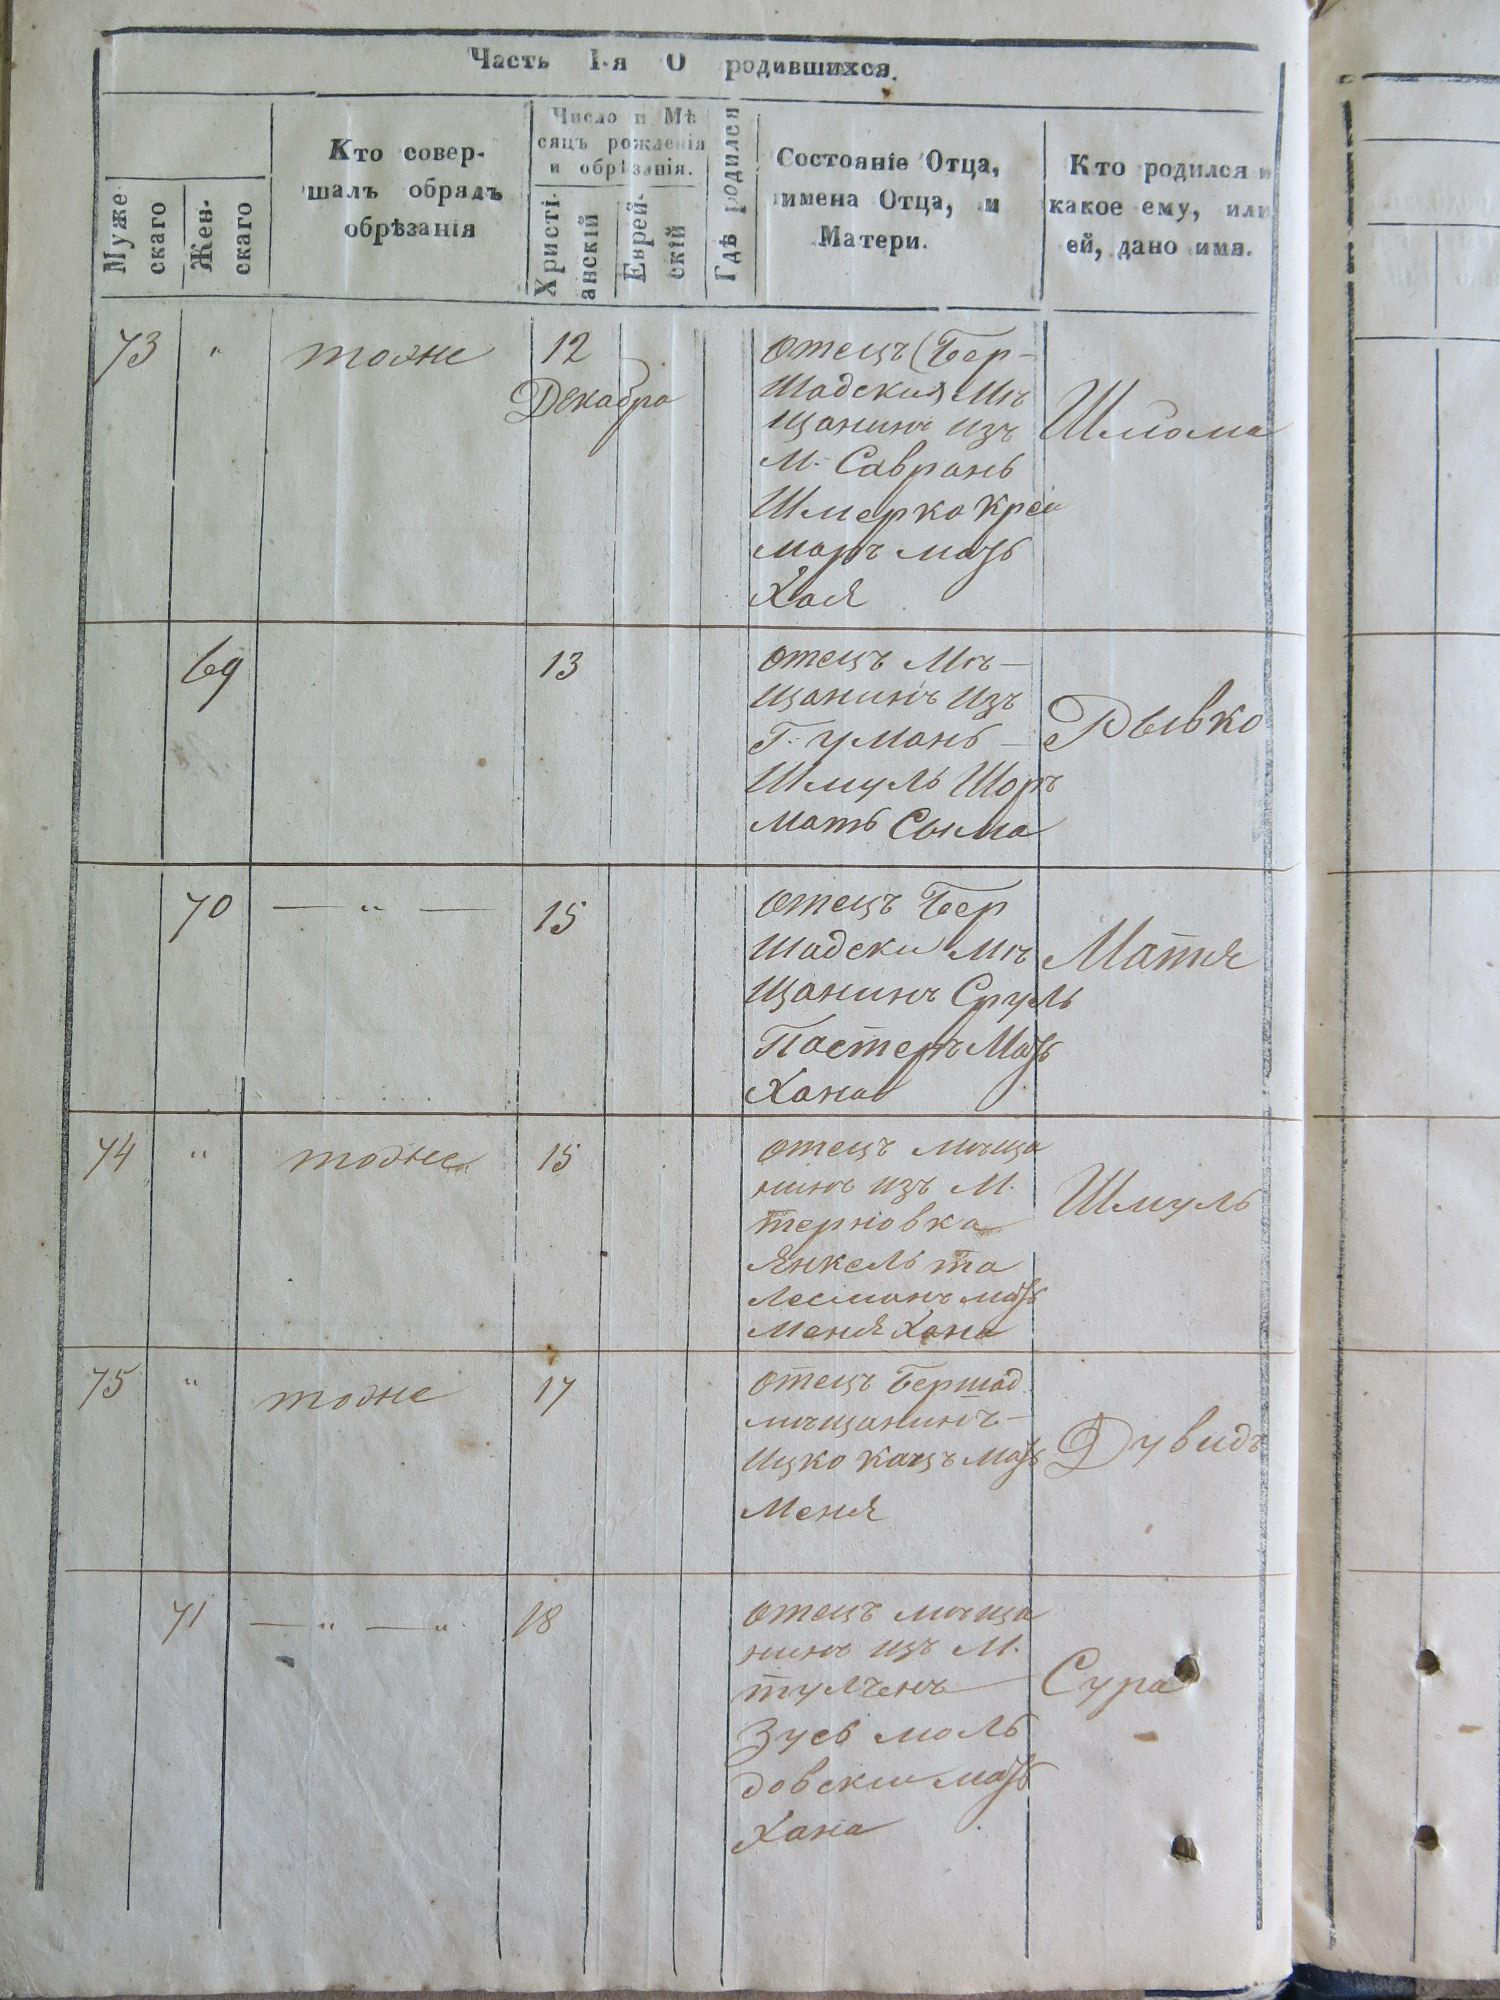 Часть I-я О родившихся.
Муже
скаго
Жен-
скаго
Кто совер-
шалъ обрядъ
обрѣзанія
Число и Мѣ
сяцъ рожденія
и обрѣзанія.
Христі-
анскій
Еврей-
скій
Гдѣ родился
Состояніе Отца,
имена Отца, и
Матери.
Кто родился и
какое ему, или
ей, дано имя.
73 " тоже 12
Декабра
отецъ Бер-
шадския мѣ
щанинъ изъ
м. Саврань
Шмерко Крей
маръ мать
Хая
Шлома
69 13
отецъ мѣ-
щанинъ изъ
г. Умань
Шмуль Шоръ
мать Сыма
Рывко
70 — " — 15
отецъ Бер
шадски мѣ
щанинъ Сруль
Пастеръ мать
Хана
Матя
74 " тоже 15
отецъ мѣща
нинъ изъ м.
терновка
Янкель та
лесманъ мать
Меня Хана
Шмуль
75 " тоже 17
отецъ Бершад.
мѣщанинъ
Ицко Кацъ мать
Меня
Дувидъ
71 — " — " 18
отецъ мѣща
нинъ изъ м.
тулченъ
Зусь моль
довски мать
Хана
Сура